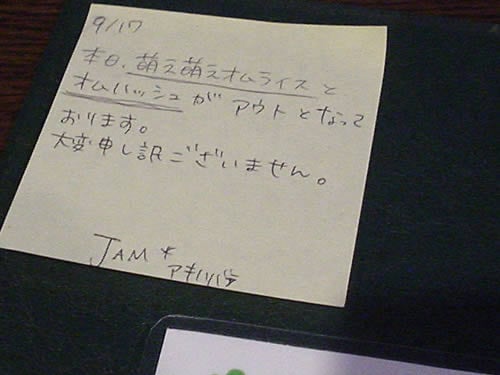 9/17
本日、萌え萌えオムライスと
オムハッシュが アウトとなって
おります。
大変申し訳ございません。
JAM